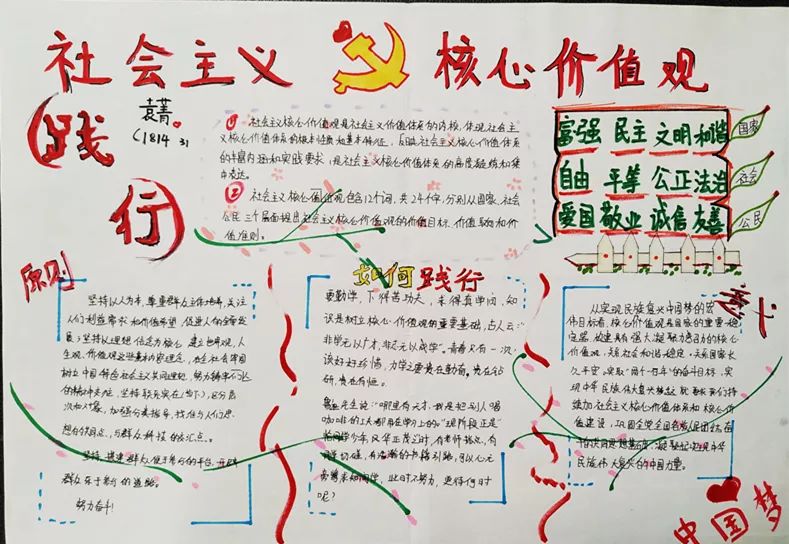 社会主义 核心价值观
践行
袁菁
(1814 31
① 社会主义核心价值观是社会主义价值体系的内核,体现社会主
义核心价值体系的根本性质和基本特征,反映社会主义核心价值体系
的丰富内涵和实践要求,是社会主义核心价值体系的高度凝练和集
中表达。
② 社会主义核心价值观包含12个词,共24个字,分别从国家、社会
公民三个层面提出社会主义核心价值观的价值目标、价值取向和价
值准则。
富强 民主 文明 和谐
国家
自由 平等 公正 法治
社会
爱国 敬业 诚信 友善
公民
原则
坚持以人为本,尊重群众主体地位,关注
人们利益诉求和价值愿望,促进人的全面发
展;坚持以理想信念为核心,建立世界观、人
生观、价值观
树立中国特色社会主义共同理想,努力铸牢
的精神支柱,坚持联系实在
次和对象,加强分类指导,找准与人们思
想的共同点、与群众利益的交汇点。
坚持
努力奋斗!
如何践行
要勤学,下得苦功夫,求得真学问,知
识是树立核心价值观的重要基础,古人云:
非学无以广才,非志无以成学”。青春只有一次,
该好好珍惜,力学之要贵在勤奋、贵在钻
研、贵在有恒。
鲁迅先生说:“哪里有天才,我是把别人喝
咖啡的工夫都用在学习上的”
年,风华正茂之时,有老师指点,有
同学切磋,有浩瀚的书籍引路,可以心无
旁骛求知问学,此时不努力,更待何时
呢?
意义
从实现民族复兴中国梦的宏
伟目标看,核心价值观是国家的重要稳
定器,构建具有强大凝聚力感召力的核心
价值观,关系社会和谐稳定,关系国家长
久平安,实现“两个一百年”的奋斗目标,实
现中华民族伟大复兴梦想,就要求我们持
续加
值建设,巩固全党全国各族人民团结奋
斗的共同思想基础,凝聚起实现中华
民族伟大复兴的中国力量。
中国梦